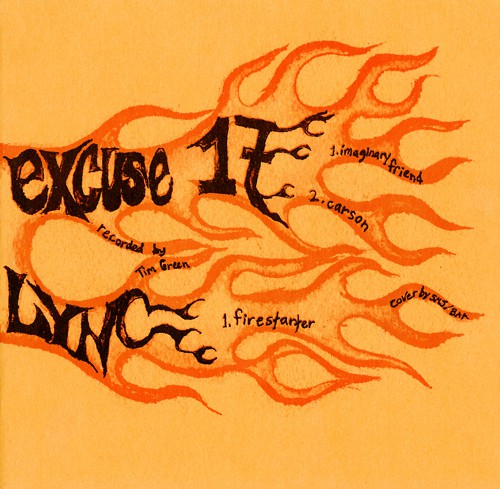 excuse 17
1. imaginary
friend
2. carson
recorded by
Tim Green
LYNC
1. firestarter
cover by